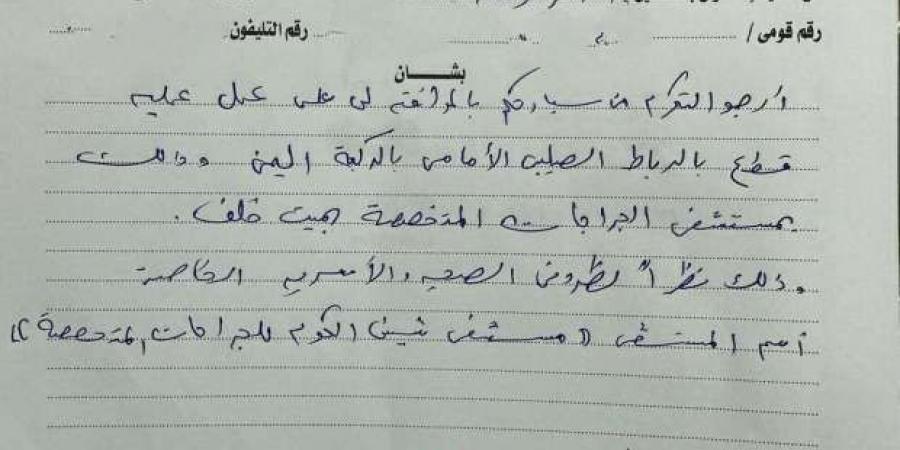 رقم قومى / رقم التليفون
بشـــان
أرجو التكرم من سيادتكم بالموافقة لى على عمل عمليه
قطع بالرباط الصليبى الأمامى بالركبة اليمنى وذلك
بمستشفى الجراجات المتخصصة بميت خلف .
وذلك نظراً لظروفى الصحيه والأسريه الخاصة
أسم المستشفى (( مستشفى شبين الكوم للجراحات المتخصصة ))